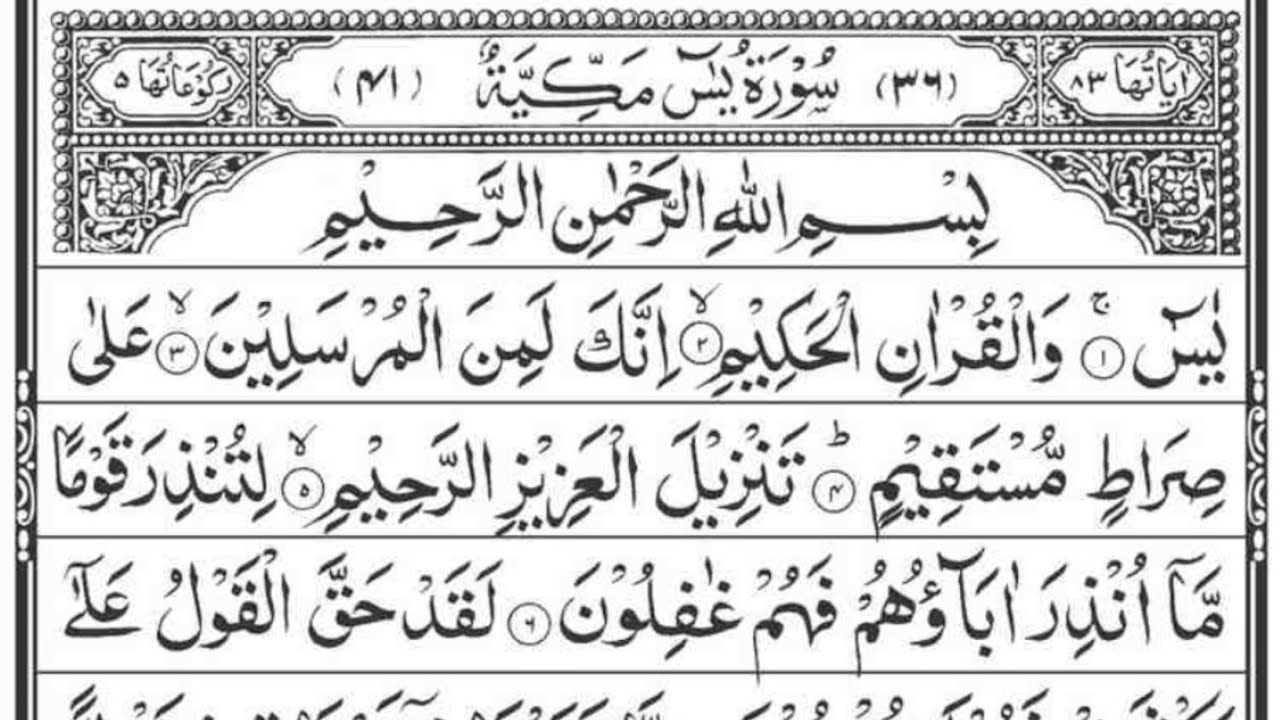 اٰيَاتُهَا ٨٣ (٣٦) سُوْرَةُ يٰسٓ مَكِّيَّةٌ (٤١) رُكُوْعَاتُهَا ٥
بِسْمِ اللّٰهِ الرَّحْمٰنِ الرَّحِيْمِ
يٰسٓ ۚ ﴿۱﴾ وَالْقُرْاٰنِ الْحَكِيْمِ ۙ ﴿۲﴾ اِنَّكَ لَمِنَ الْمُرْسَلِيْنَ ۙ ﴿۳﴾ عَلٰى
صِرَاطٍ مُّسْتَقِيْمٍ ؕ ﴿۴﴾ تَنْزِيْلَ الْعَزِيْزِ الرَّحِيْمِ ۙ ﴿۵﴾ لِتُنْذِرَ قَوْمًا
مَّآ اُنْذِرَ اٰبَآؤُهُمْ فَهُمْ غٰفِلُوْنَ ﴿۶﴾ لَقَدْ حَقَّ الْقَوْلُ عَلٰٓى